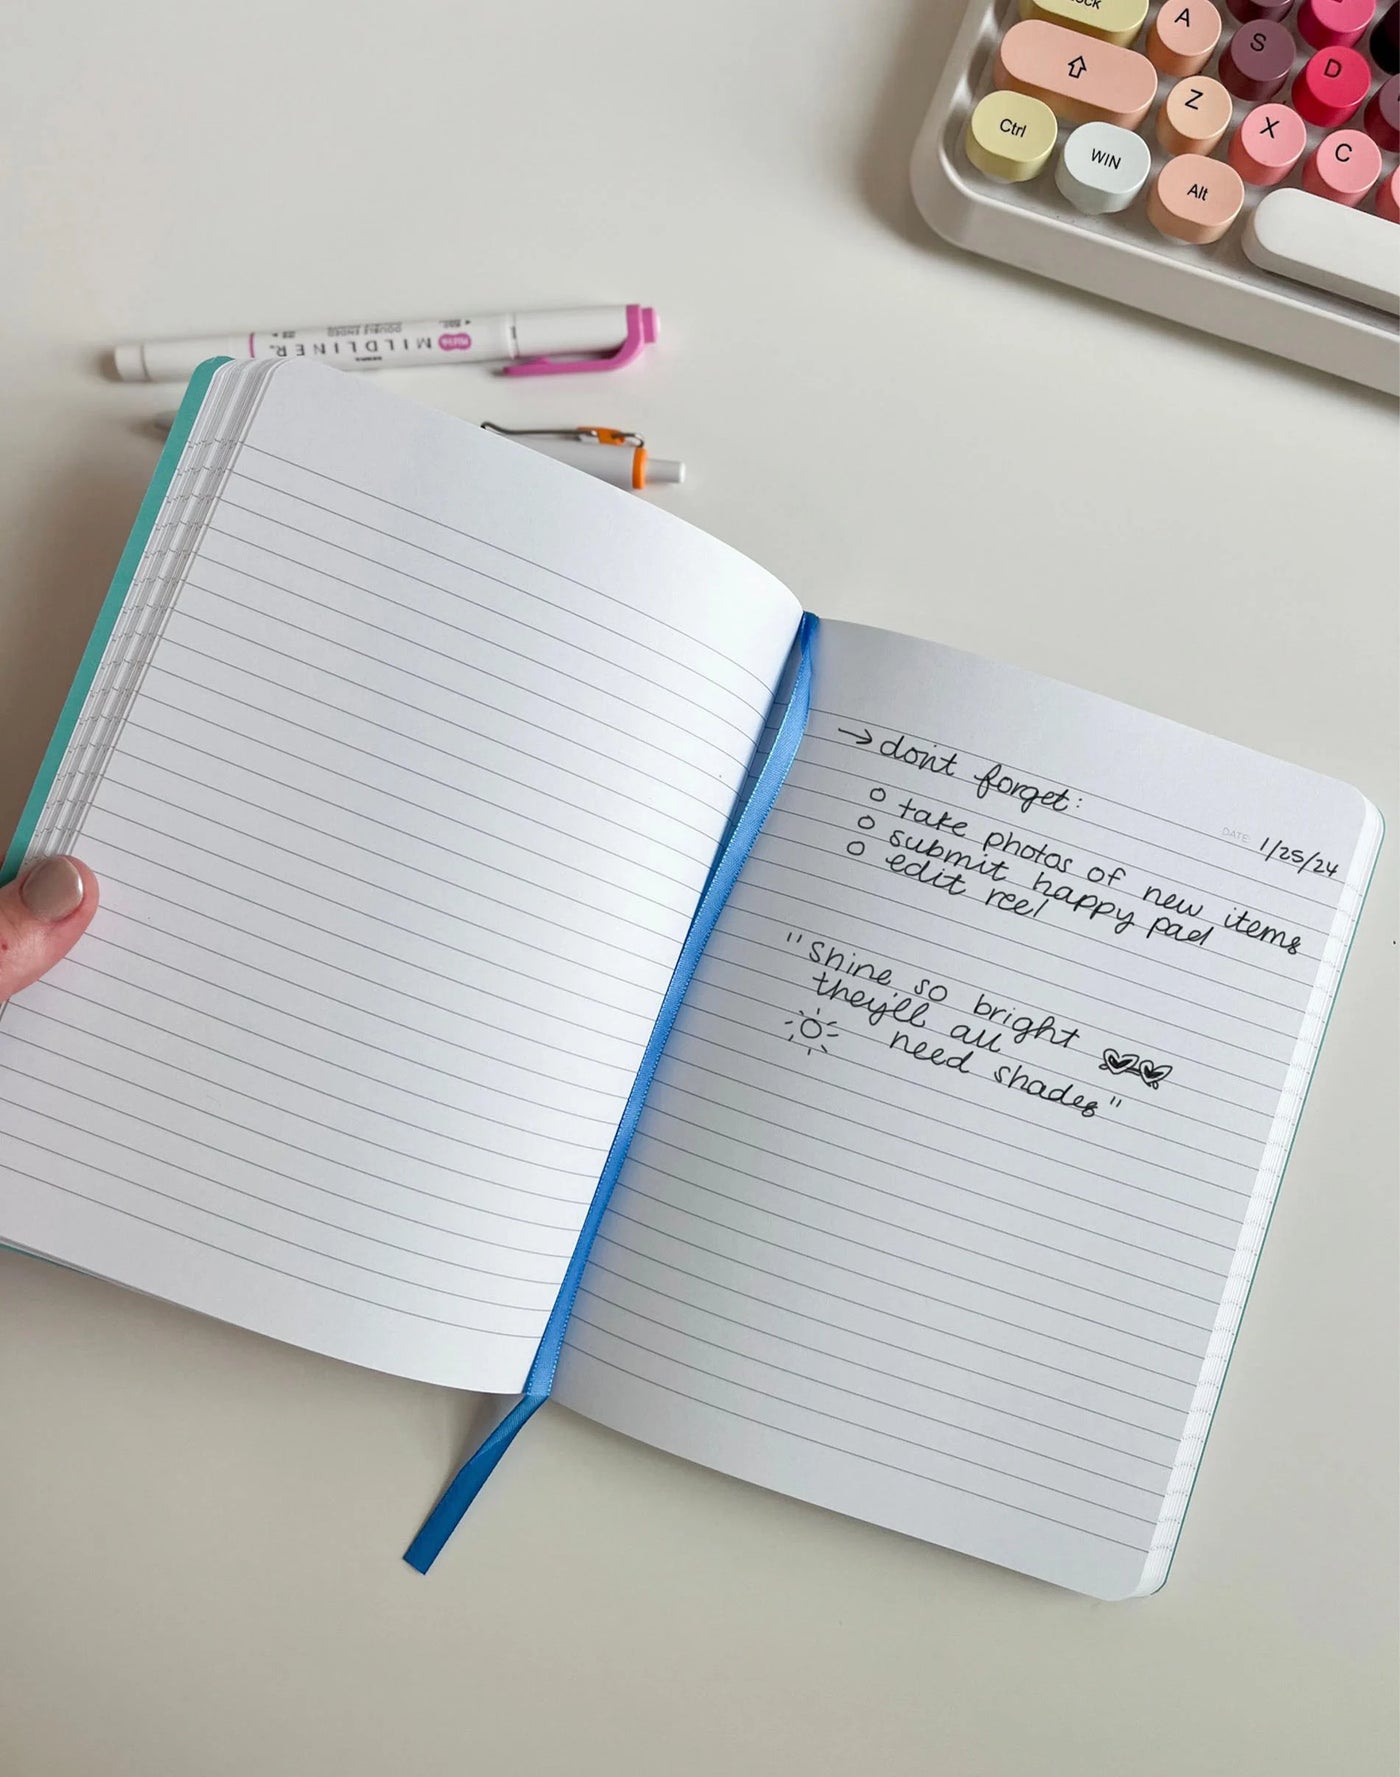 ock
A
S
D
⇧
Z
X
C
Ctrl
WIN
Alt
MILDLINER
DOUBLE ENDED
ZEBRA
→ don't forget:
DATE: 1/25/24
o take photos of new items
o submit happy pad
o edit reel
"shine so bright
they'll all
need shades"